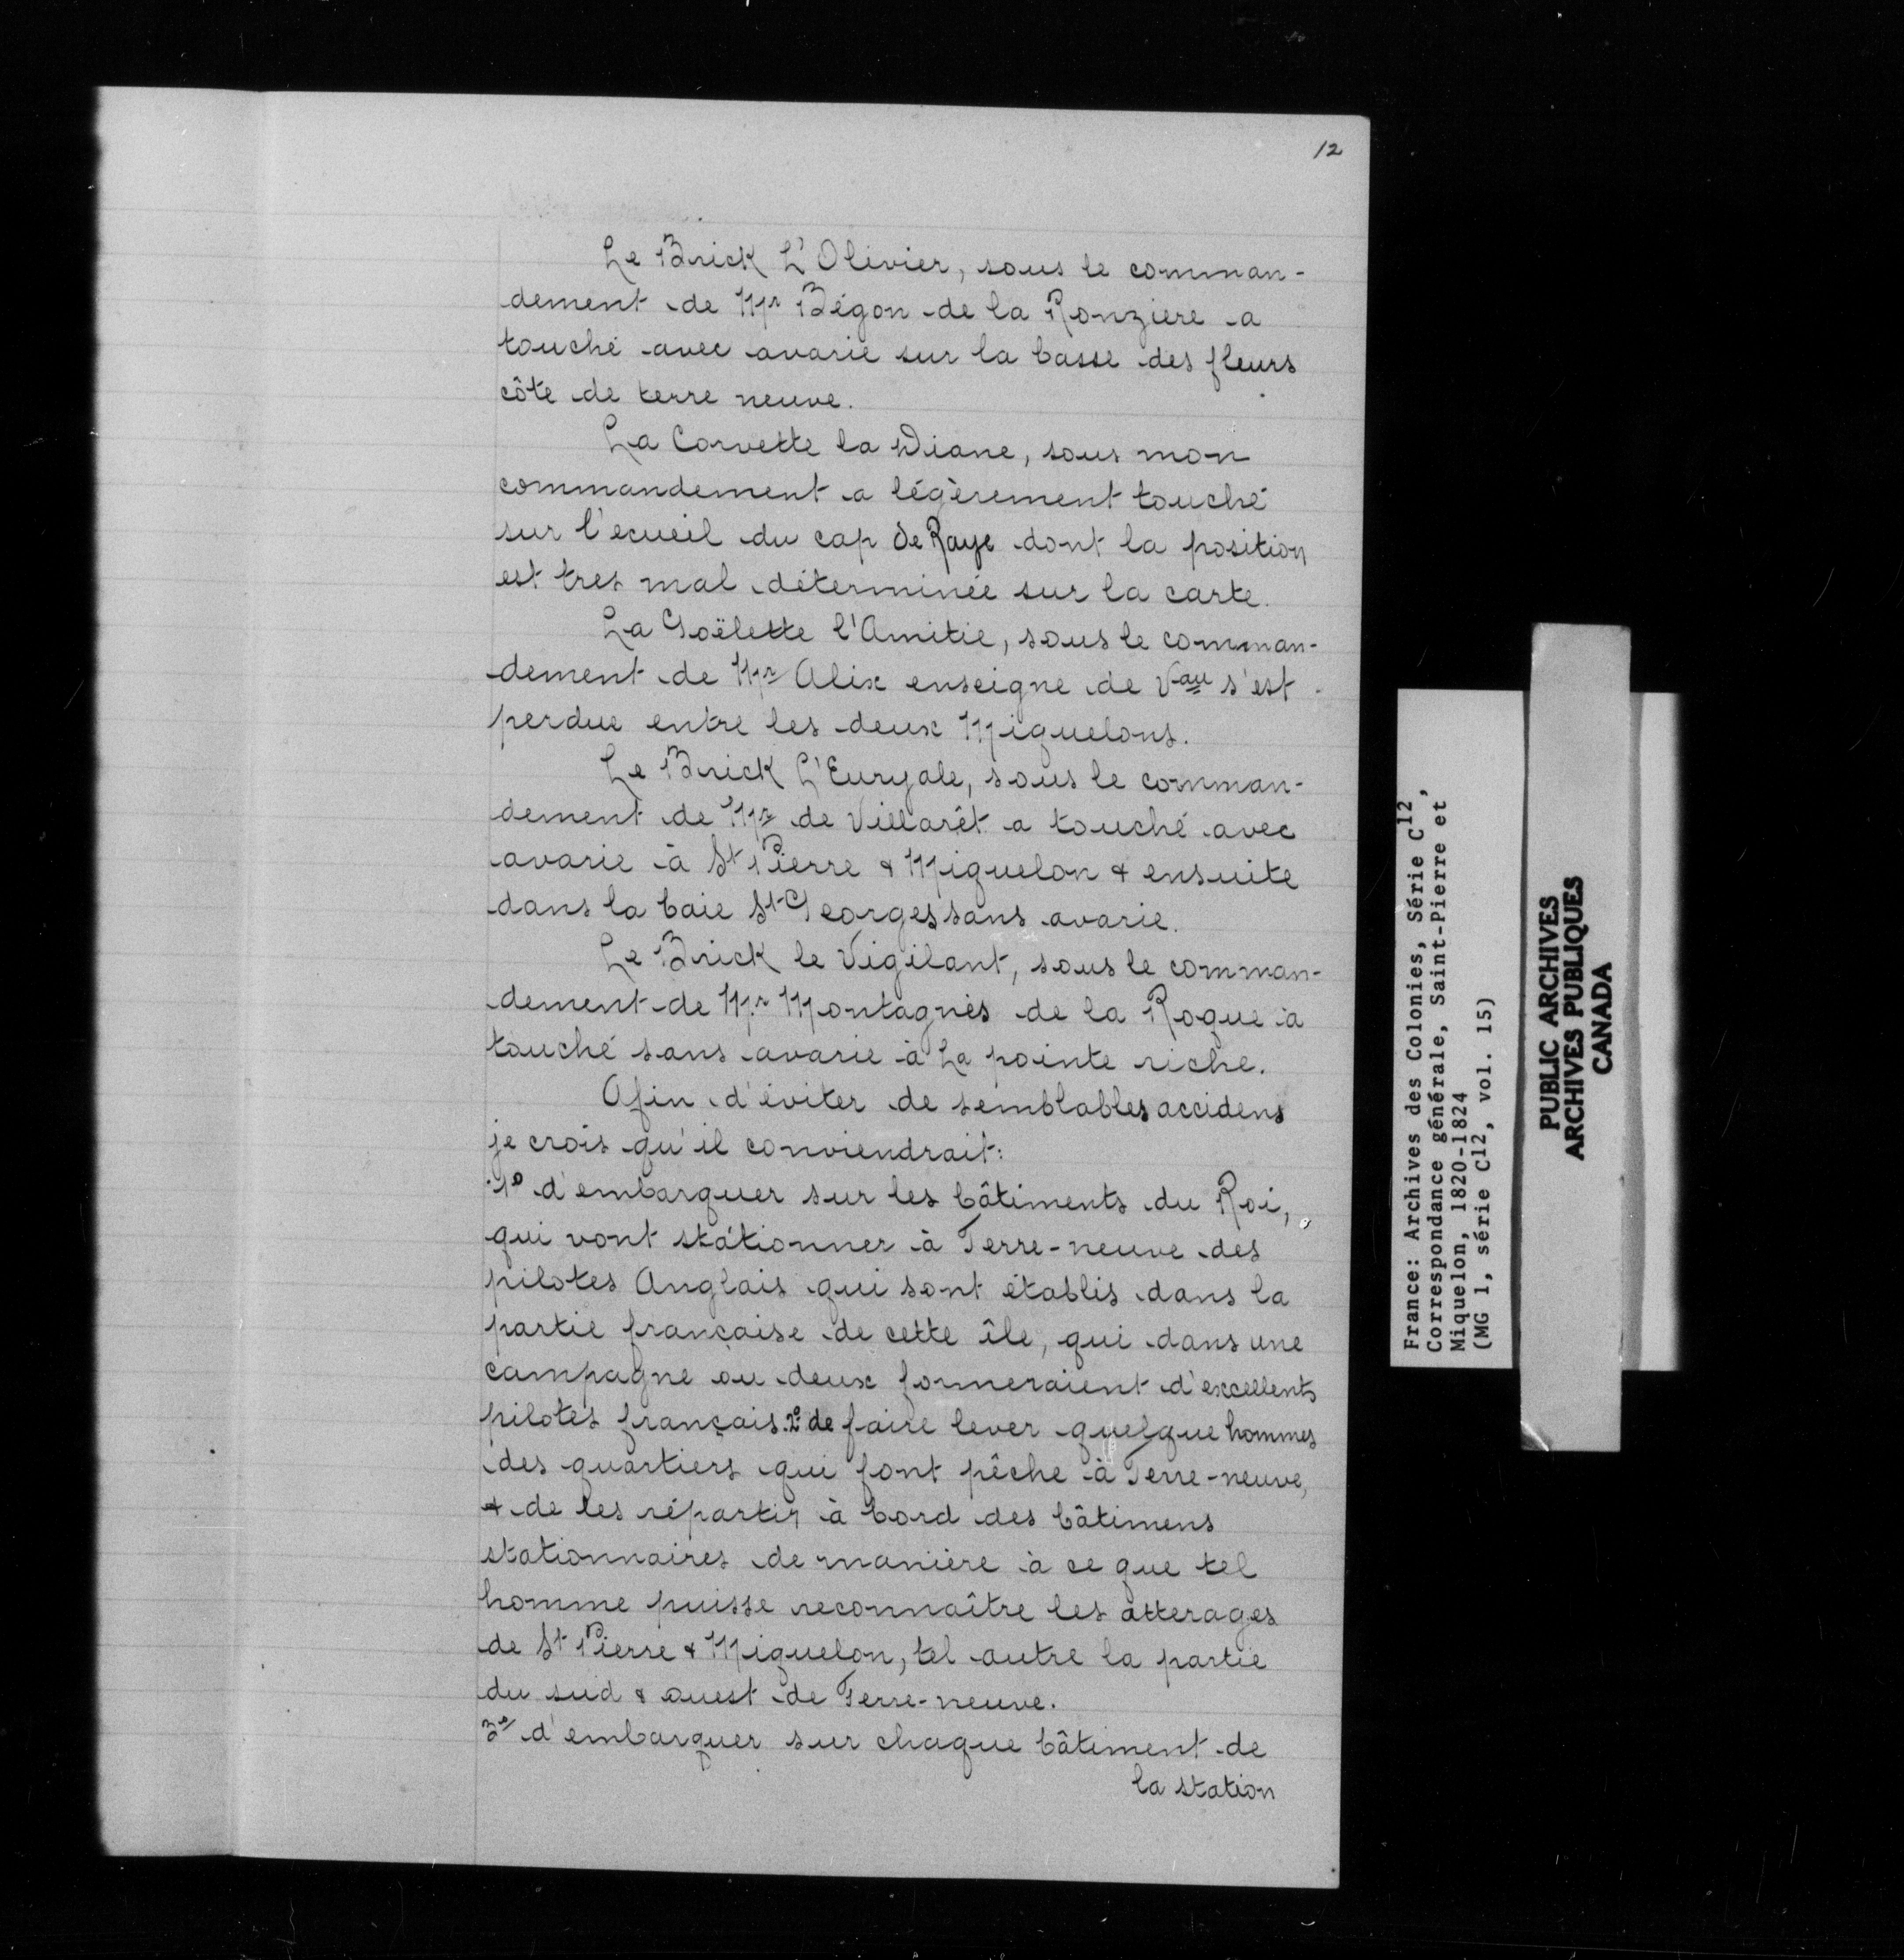 12
Le Brick L'Olivier, sous le comman-
dement de Mr Bégon de la Ronziere a
touché avec avarie sur la basse des fleurs
côte de terre neuve.
La Corvette la Diane, sous mon
commandement a légèrement touché
sur l'ecueil du cap de Raye dont la position
est tres mal déterminée sur la carte.
La Goëlette l'Amitie, sous le comman-
dement de Mr Alix enseigne de Vau s'est
perdue entre les deux Miquelons.
Le Brick L'Euryale, sous le comman-
dement de Mr de Villarêt a touché avec
avarie à St Pierre & Miquelon & ensuite
dans la baie St-Georges sans avarie.
Le Brick le Vigilant, sous le comman-
dement de Mr Montagnès de la Roque a
touché sans avarie à La pointe riche.
Afin d'éviter de semblables accidens
je crois qu'il conviendrait:
1º d'embarquer sur les bâtiments du Roi,
qui vont stationner à Terre-neuve des
pilotes Anglais qui sont établis dans la
partie française de cette île, qui dans une
campagne ou deux formeraient d'excellents
pilotes français. 2º de faire lever quelque hommes
des quartiers qui font pêche à Terre-neuve,
& de les répartir à bord des bâtimens
stationnaires de manière à ce que tel
homme puisse reconnaître les atterages
de St Pierre & Miquelon, tel autre la partie
du sud & ouest de Terre-neuve.
3º d'embarquer sur chaque bâtiment de
la station
France: Archives des Colonies, Série C12,
Correspondance générale, Saint-Pierre et
Miquelon, 1820-1824
(MG 1, série C12, vol. 15)
PUBLIC ARCHIVES
ARCHIVES PUBLIQUES
CANADA